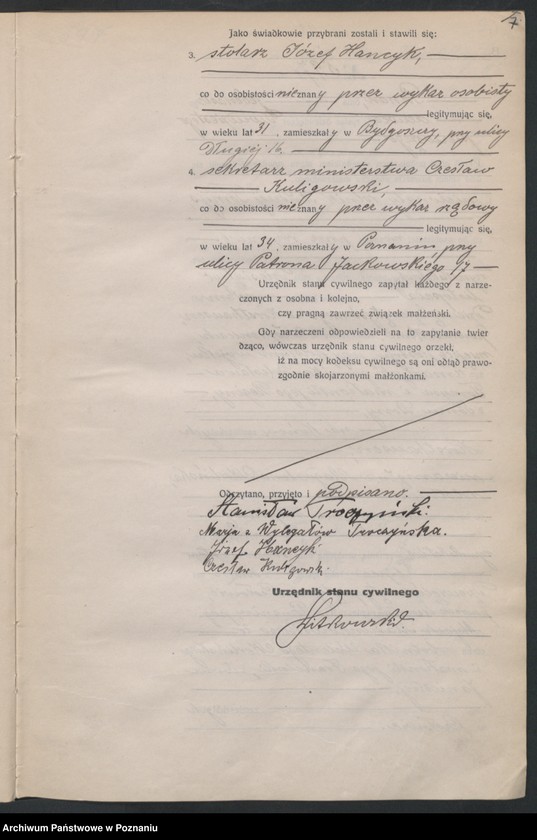 7
Jako świadkowie przybrani zostali i stawili się:
3. stolarz Józef Hancyk,
co do osobistości nieznany przez wykaz osobisty
legitymując się,
w wieku lat 31, zamieszkały w Bydgoszczy, przy ulicy
Długiej 16
4. sekretarz ministerstwa Czesław
Kuligowski,
co do osobistości nieznany przez wykaz rządowy
legitymując się,
w wieku lat 34, zamieszkały w Poznaniu, przy
ulicy Patrona Jackowskiego 17
Urzędnik stanu cywilnego zapytał każdego z narze-
czonych z osobna i kolejno,
czy pragną zawrzeć związek małżeński.
Gdy narzeczeni odpowiedzieli na to zapytanie twier
dząco, wówczas urzędnik stanu cywilnego orzekł,
iż na mocy kodeksu cywilnego są oni odtąd prawo-
zgodnie skojarzonymi małżonkami.
Odczytano, przyjęto i podpisano.
Stanisław Troczyński.
Marja z Wylegałów Troczyńska.
Józef Hancyk
Czesław Kuligowski
Urzędnik stanu cywilnego
Archiwum Państwowe w Poznaniu